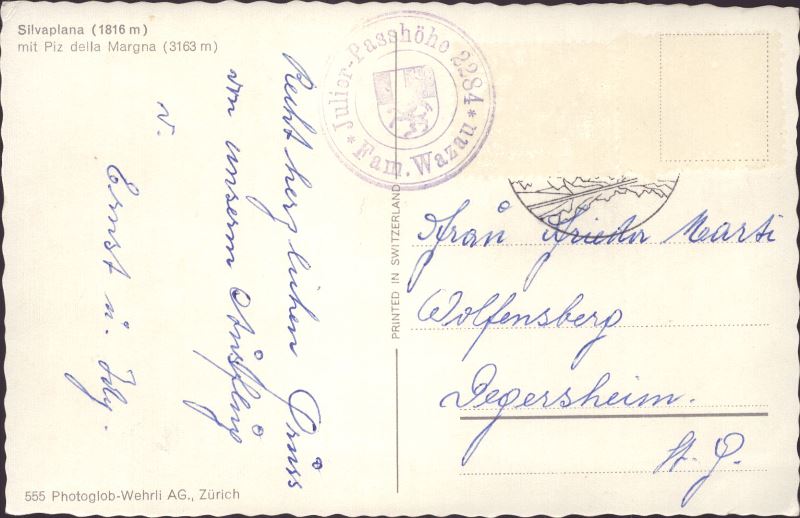 Silvaplana (1816 m)
mit Piz della Margna (3163 m)
Recht herzlichen Grüss
von unserm Ausflug
v.
Ernst u.
555 Photoglob-Wehrli AG., Zürich
PRINTED IN SWITZERLAND
* Julier-Passhöhe 2284 *
Fam. Wazau
Frau Frieda Marti
Wolfensberg
Degersheim.
St. G.